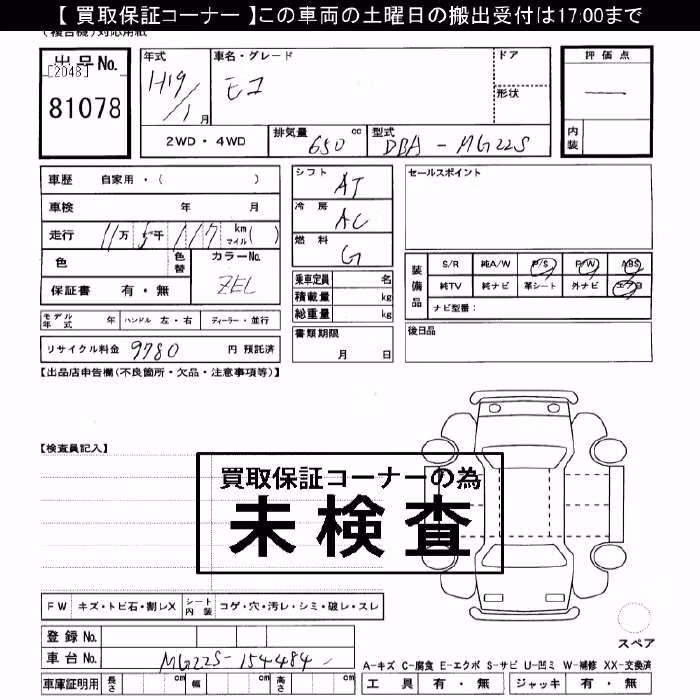 【 買取保証コーナー 】この車両の土曜日の搬出受付は17:00まで
(複合機)対応用紙
出品No. [2048] 81078
年式 H19/1 月
車名・グレード モコ
ドア
形状
評価点 —
内装
2WD・4WD
排気量 650 cc
型式 DBA - MG22S
車歴 自家用・( )
車検 年 月
走行 11万 5千 117 km マイル ( )
色 色替 カラーNo. ZEL
保証書 有・無
シフト AT
冷房 AC
燃料 G
乗車定員 名
積載量 kg
総重量 kg
書類期限 月 日
セールスポイント
装備品 S/R 純A/W P/S P/W ABS
純TV 純ナビ 革シート 外ナビ エアB
ナビ型番:
後日品
モデル年式 年 ハンドル 左・右 ディーラー・並行
リサイクル料金 9780 円 預託済
【出品店申告欄(不良箇所・欠品・注意事項等)】
【検査員記入】
買取保証コーナーの為
未検査
FW キズ・トビ石・割レX シート内装 コゲ・穴・汚レ・シミ・破レ・スレ
登録No.
車台No. MG22S-154484
車庫証明用 長さ cm 幅 cm 高さ cm
スペア
A-キズ C-腐食 E-エクボ S-サビ U-凹ミ W-補修 XX-交換済
工具 有・無 ジャッキ 有・無